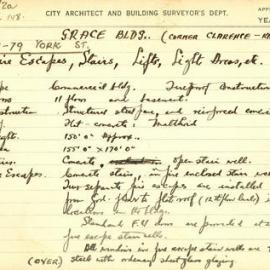 2a
CITY ARCHITECT AND BUILDING SURVEYOR'S DEPT.
YEA
GRACE BLDG. (CORNER CLARENCE - K
-79 YORK ST.
ire Escapes, Stairs, Lifts, Light Areas, etc.
Commercial bldg. Fireproof Construction
11 floors and basement.
Structural steel frame, and reinforced concre
Flat concrete : Malthoid
150'0" Approx.
155'0" x 170'0"
Concrete, Open stair well.
Escapes. Concrete stairs, in fire enclosed stair wel
Two separate fire escapes are installed
from Grd. floor to flat roof (12th floor level) in
locations in the bldg.
Standard F.P. doors are provided at
fire escape stair wells.
All windows in fire escape stair wells are
(OVER) steel with ordinary sheet glass glazing